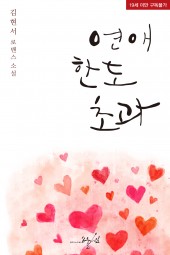 19세 미만 구독불가
연애
한도
초과
김현서 로맨스 소설